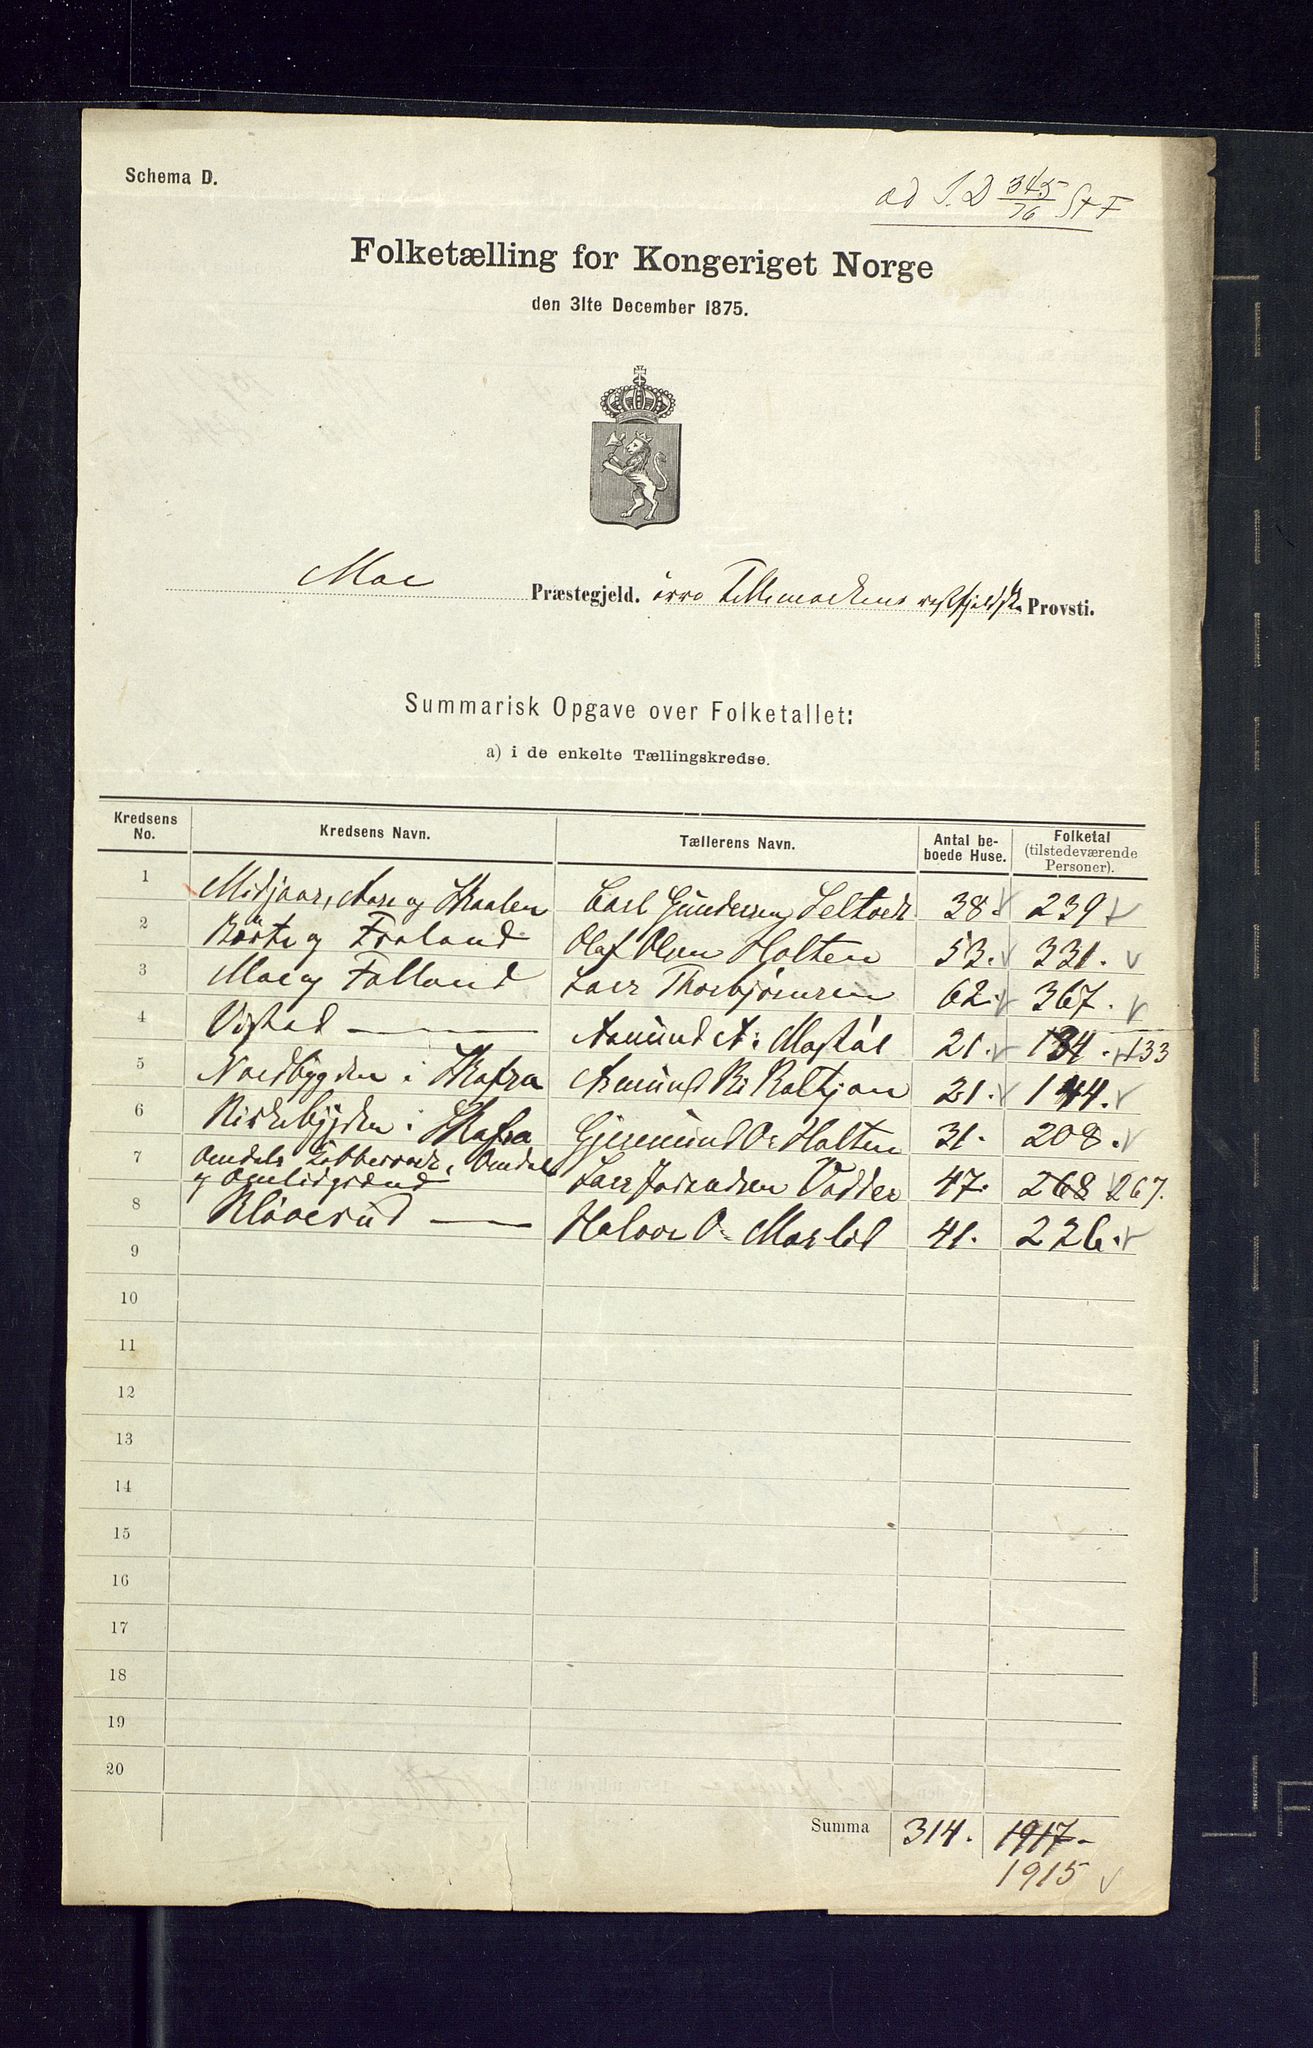 Schema D.
ad I.D 345/76 St F
Folketælling for Kongeriget Norge
den 31te December 1875.
Moe Præstegjeld. øvre Tellemarkens vestfjeldske Provsti.
Summarisk Opgave over Folketallet:
a) i de enkelte Tællingskredse.
Kredsens No. Kredsens Navn. Tællerens Navn. Antal beboede Huse. Folketal (tilstedeværende Personer).
1 Midjaas, Aase og Skaalen Carl Gundersen Seltveit 38. 239
2 Børte og Froland Olaf Olsen Holten 53. 331.
3 Moe og Folland Lars Thorbjørnsen 62. 367.
4 Vistad Asmund A: 21. 134. 133
5 Nordbygden i Skafsa Asmund 21. 144.
6 Kirkebygden i Skafsa Gjermund O: Holten 31. 208.
7 Omdals Kobberværk, Omdal og Omlidgrænd Lars Jørandsen Vadder 47. 268 267.
8 Kløverud Halvor O: Maslid 41. 226.
9
10
11
12
13
14
15
16
17
18
19
20
Summa 314. 1917.
1915